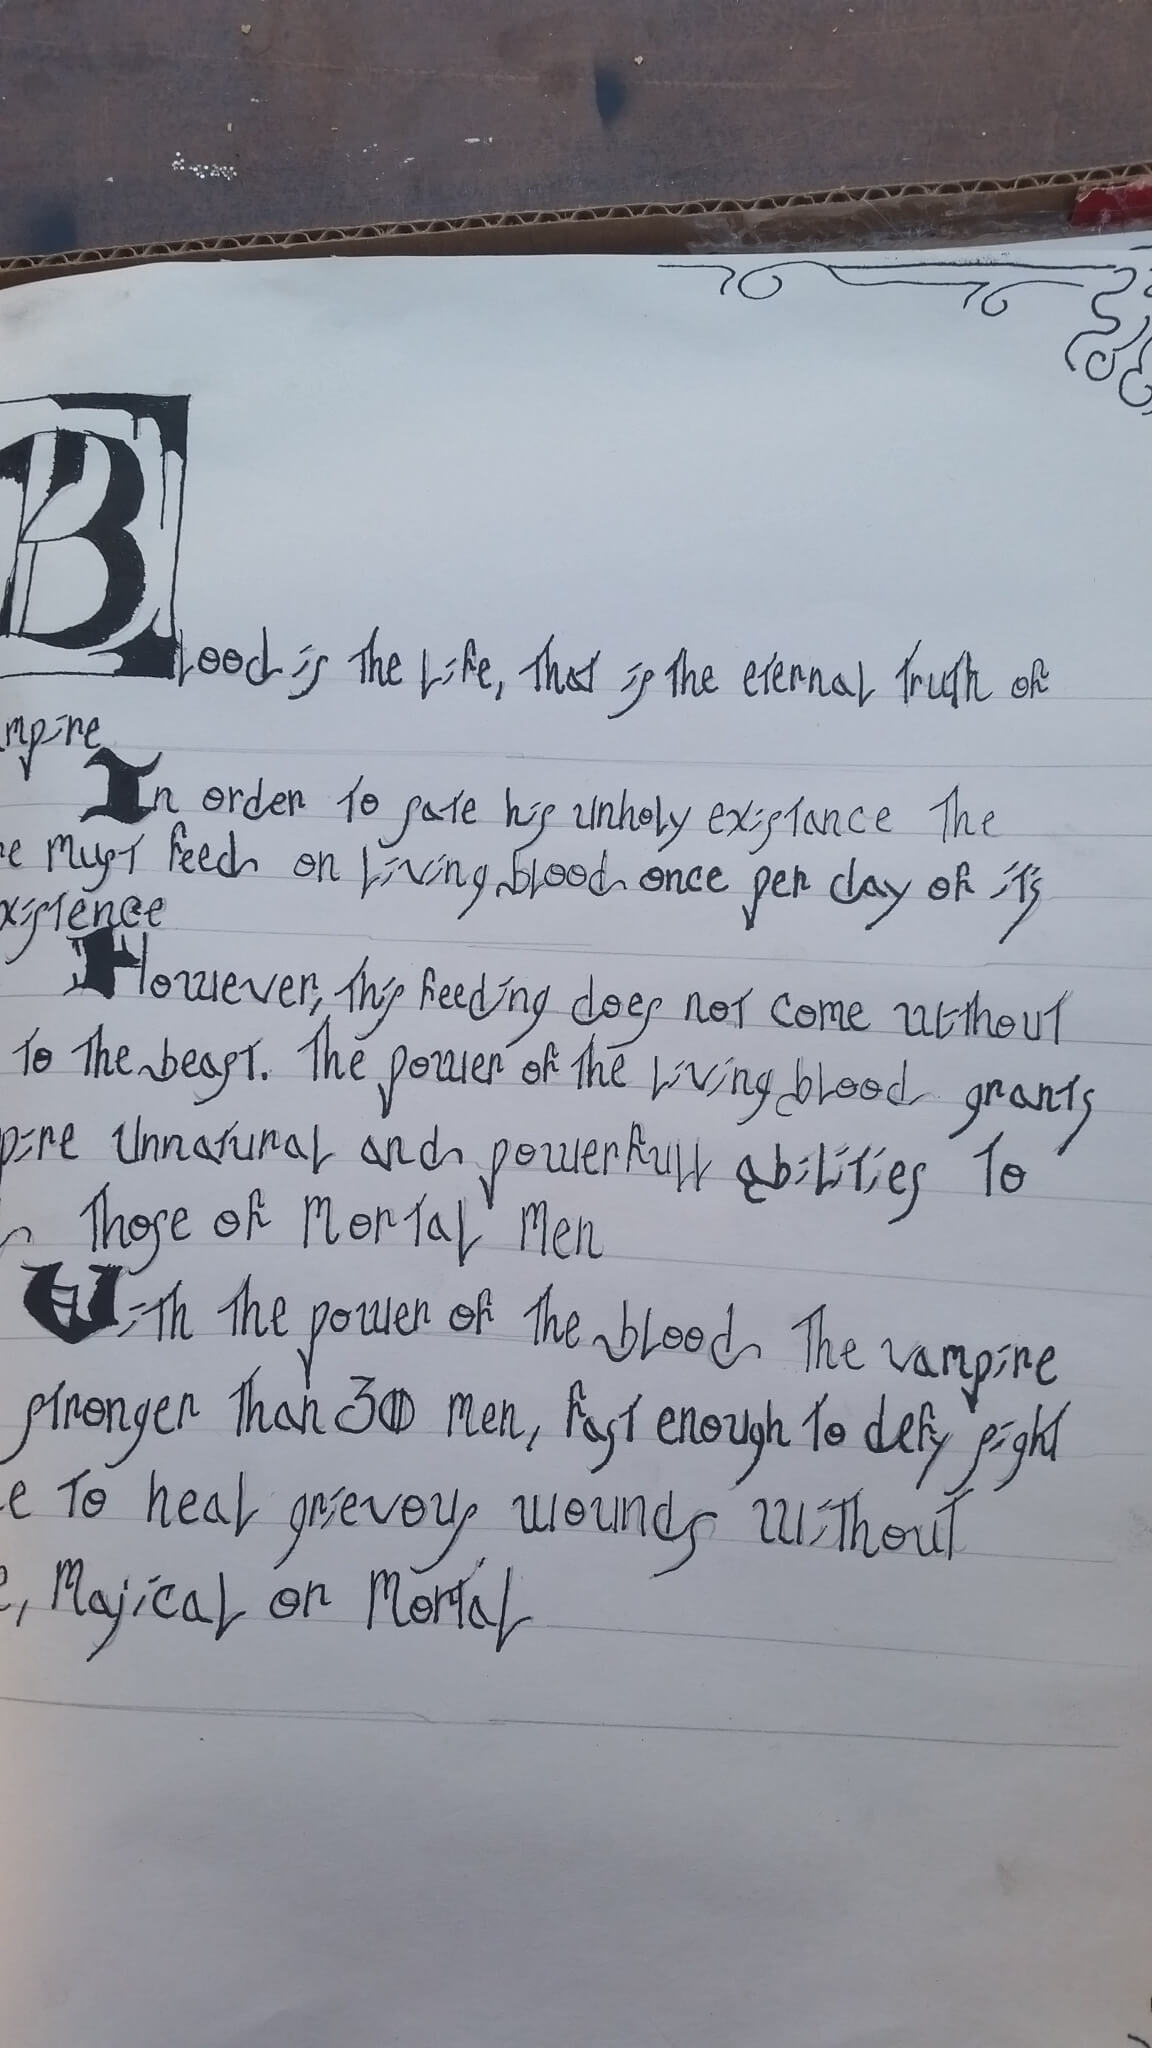 Blood is the life, that is the eternal truth of
mpire
In order to sate his unholy existance the
e must feed on living blood once per day of its
xistence
However, this feeding does not come without
to the beast. The power of the living blood grants
pire unnatural and powerfull abilities to
those of mortal men
With the power of the blood the vampire
stronger than 30 men, fast enough to defy sight
e to heal grievous wounds without
e, majical or mortal